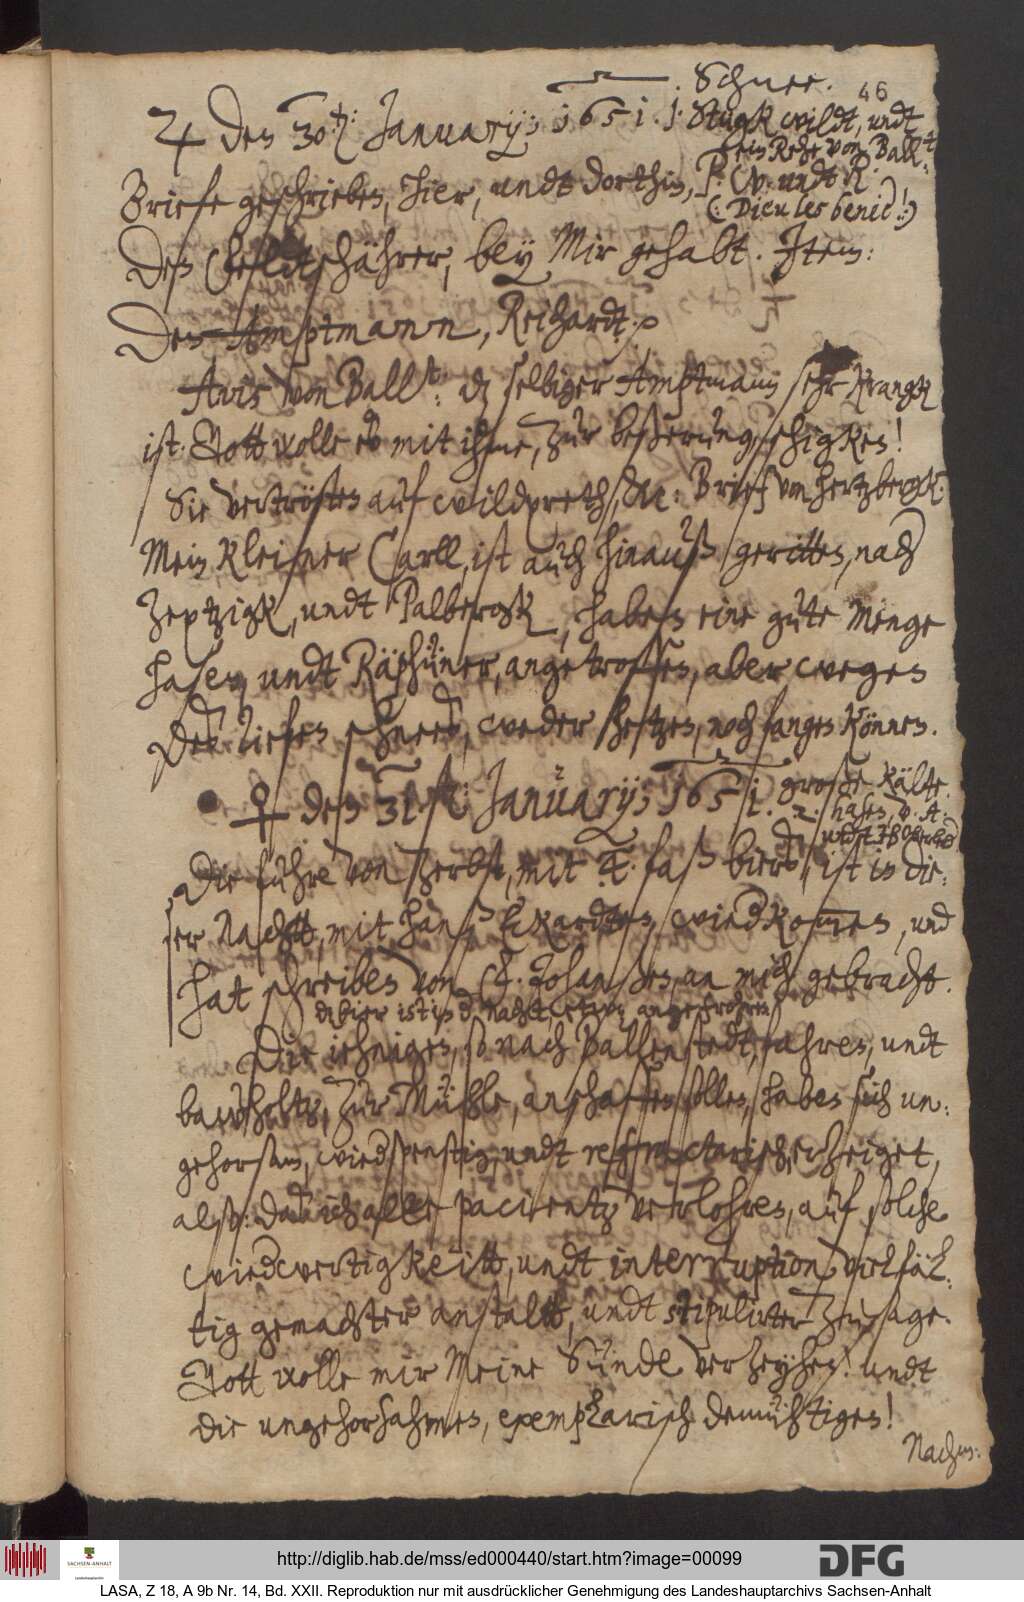 Schnee.
46
♃ den 30.ten: January; 1651. 1. Stugk wildt, undt
ein Rehe von Ball.t
Briefe geschrieben, hier, undt dorthin, P. W. undt R.
(: Dieu les benie! :)
Den hältschährer, bey Mir gehabt. Item:
Den Amptmann, Reichardt.
Avis von Ballst: dz selbiger Amptmann sehr Krangk
ist. Gott wolle es mit ihme, zur beßerung schigken!
Sie vertrösten auf wildpreth, &c: Brief von Hertzbergk.
Mein Kleiner Carll, ist auch hinauß geritten, nach
Zeptzigk, undt Palbergk, haben eine gute Menge
hasen, undt Räphüner, angetroffen, aber wegen
des tiefen schnees, weder hetzen, noch fangen können.
♀ den 31. ten: January; 1651. große Kälte.
2. hasen, v. A.
Die fuhre von Zerbst, mit 4. faß biers, ist in die-
ser Nachtt, mit Hanß Eckardten, wiedkommen, und
hat schreiben von F. Johansen, an mich gebracht.
di bier ist in d. Nacht etwz angefrohren
Die iehnigen, so nach Ballenstedt, fahren, undt
bawholtz, zur Mühle, anschaffen sollen, haben sich un-
gehorsam, wiedspenstig, undt reffractarisch, erzeiget,
also: daß ich alle pacientz verlohren, auf solche
wiedwertigkeitt, undt interruption, vielfäl-
tig gemachter anstaltt, undt stipulirter zusage.
Gott wolle mir Meine Sünde verzeyhen! undt
die ungehorsahmen, exemplarisch demühtigen!
Nachm:
http://diglib.hab.de/mss/ed000440/start.htm?image=00099
SACHSEN-ANHALT
Landeshauptarchiv
DFG
LASA, Z 18, A 9b Nr. 14, Bd. XXII. Reproduktion nur mit ausdrücklicher Genehmigung des Landeshauptarchivs Sachsen-Anhalt